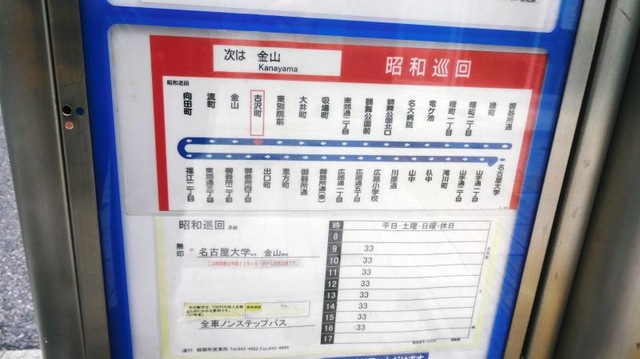 次は 金山
Kanayama
昭和巡回
昭和巡回
向田町
流町
金山
古沢町
東別院前
大井町
吸場町
東郊通二丁目
鶴舞公園前
鶴舞公園北口
名大病院
竜ケ池
曙町一丁目
曙町二丁目
御器所通
名古屋大学
福江二丁目
東郊通三丁目
御器所二丁目
御器所四丁目
出口町
恵方町
御器所通
御器所通(東)
広路通二丁目
広路通五丁目
広路小学校
川原通
山中
杁中
滝川町
山手三丁目
山手二丁目
昭和巡回 系統
時 平日・土曜・日曜・休日
8
9 33
10 33
11 33
12 33
13 33
14 33
15 33
16 33
17
無印=名古屋大学 金山
全車ノンステップバス